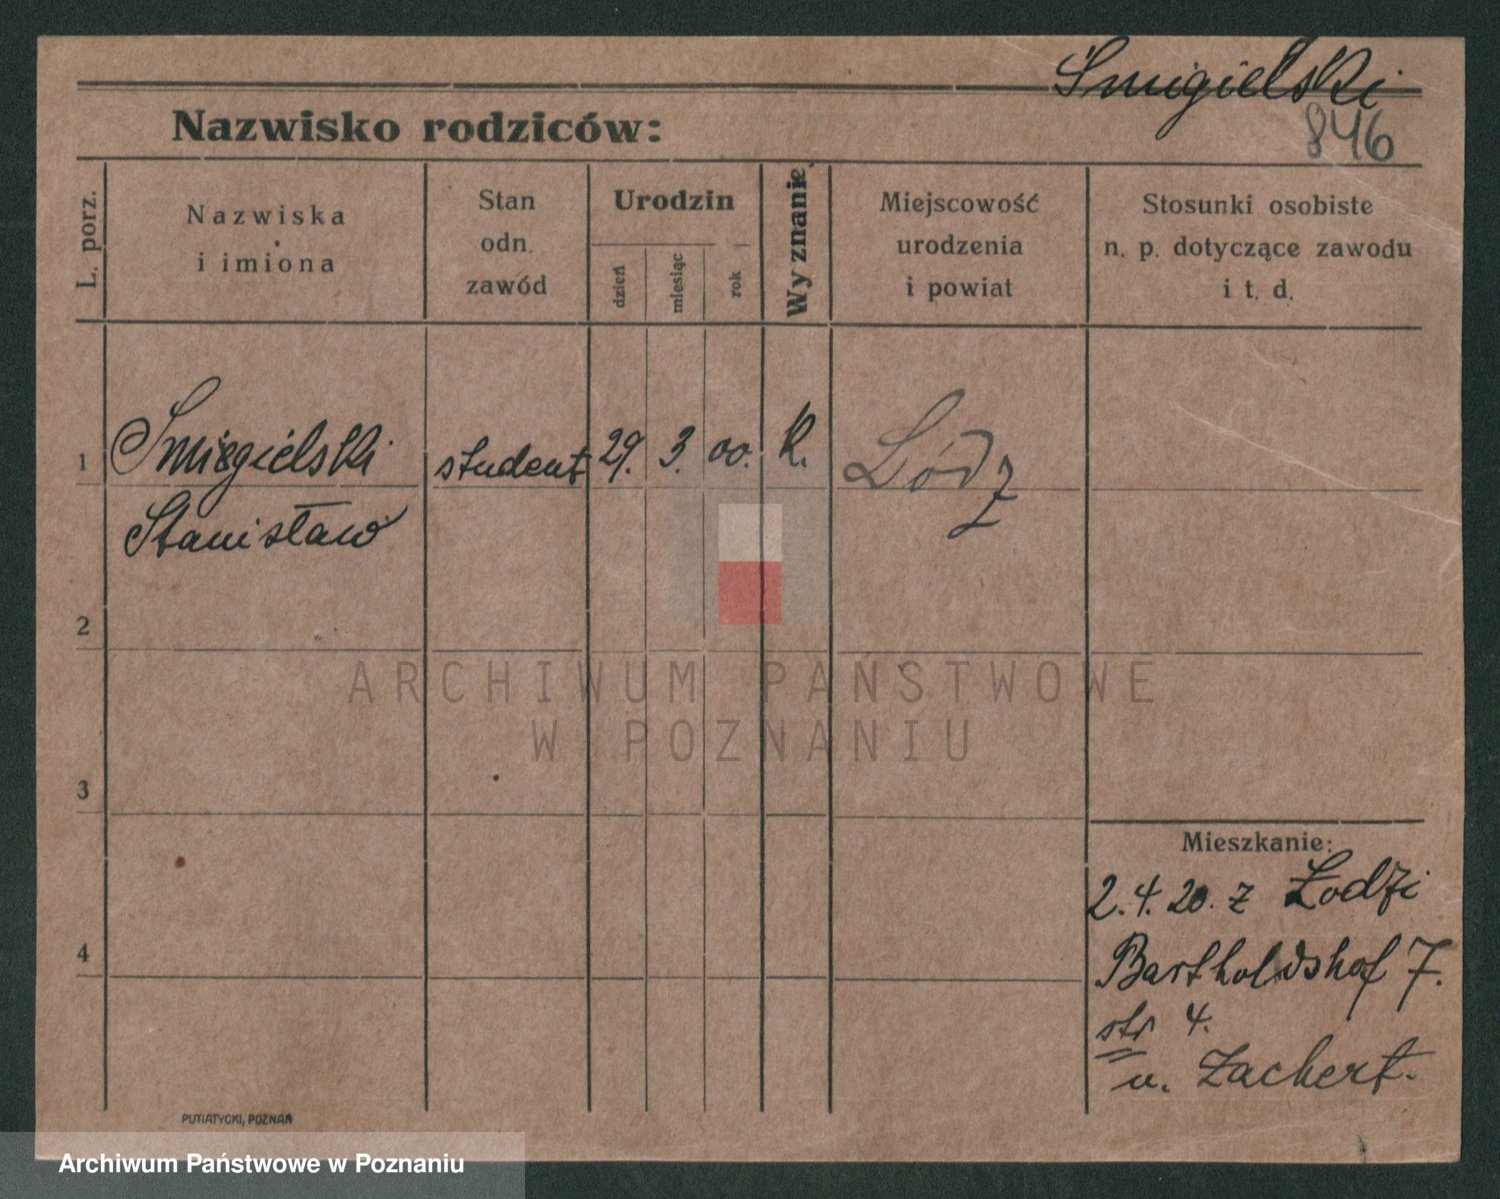 Śmigielski
846
Nazwisko rodziców:
L. porz.
Nazwiska
i imiona
Stan
odn.
zawód
Urodzin
dzień
miesiąc
rok
Wyznanie
Miejscowość
urodzenia
i powiat
Stosunki osobiste
n. p. dotyczące zawodu
i t. d.
1
Śmigielski
Stanisław
student
29.
3.
00.
k.
Łódz
2
ARCHIWUM PAŃSTWOWE
W POZNANIU
3
4
Mieszkanie:
2.4.20. z Łodzi
Bartholdshof 7.
str 4.
u. Zachert.
PUTIATYCKI, POZNAŃ
Archiwum Państwowe w Poznaniu